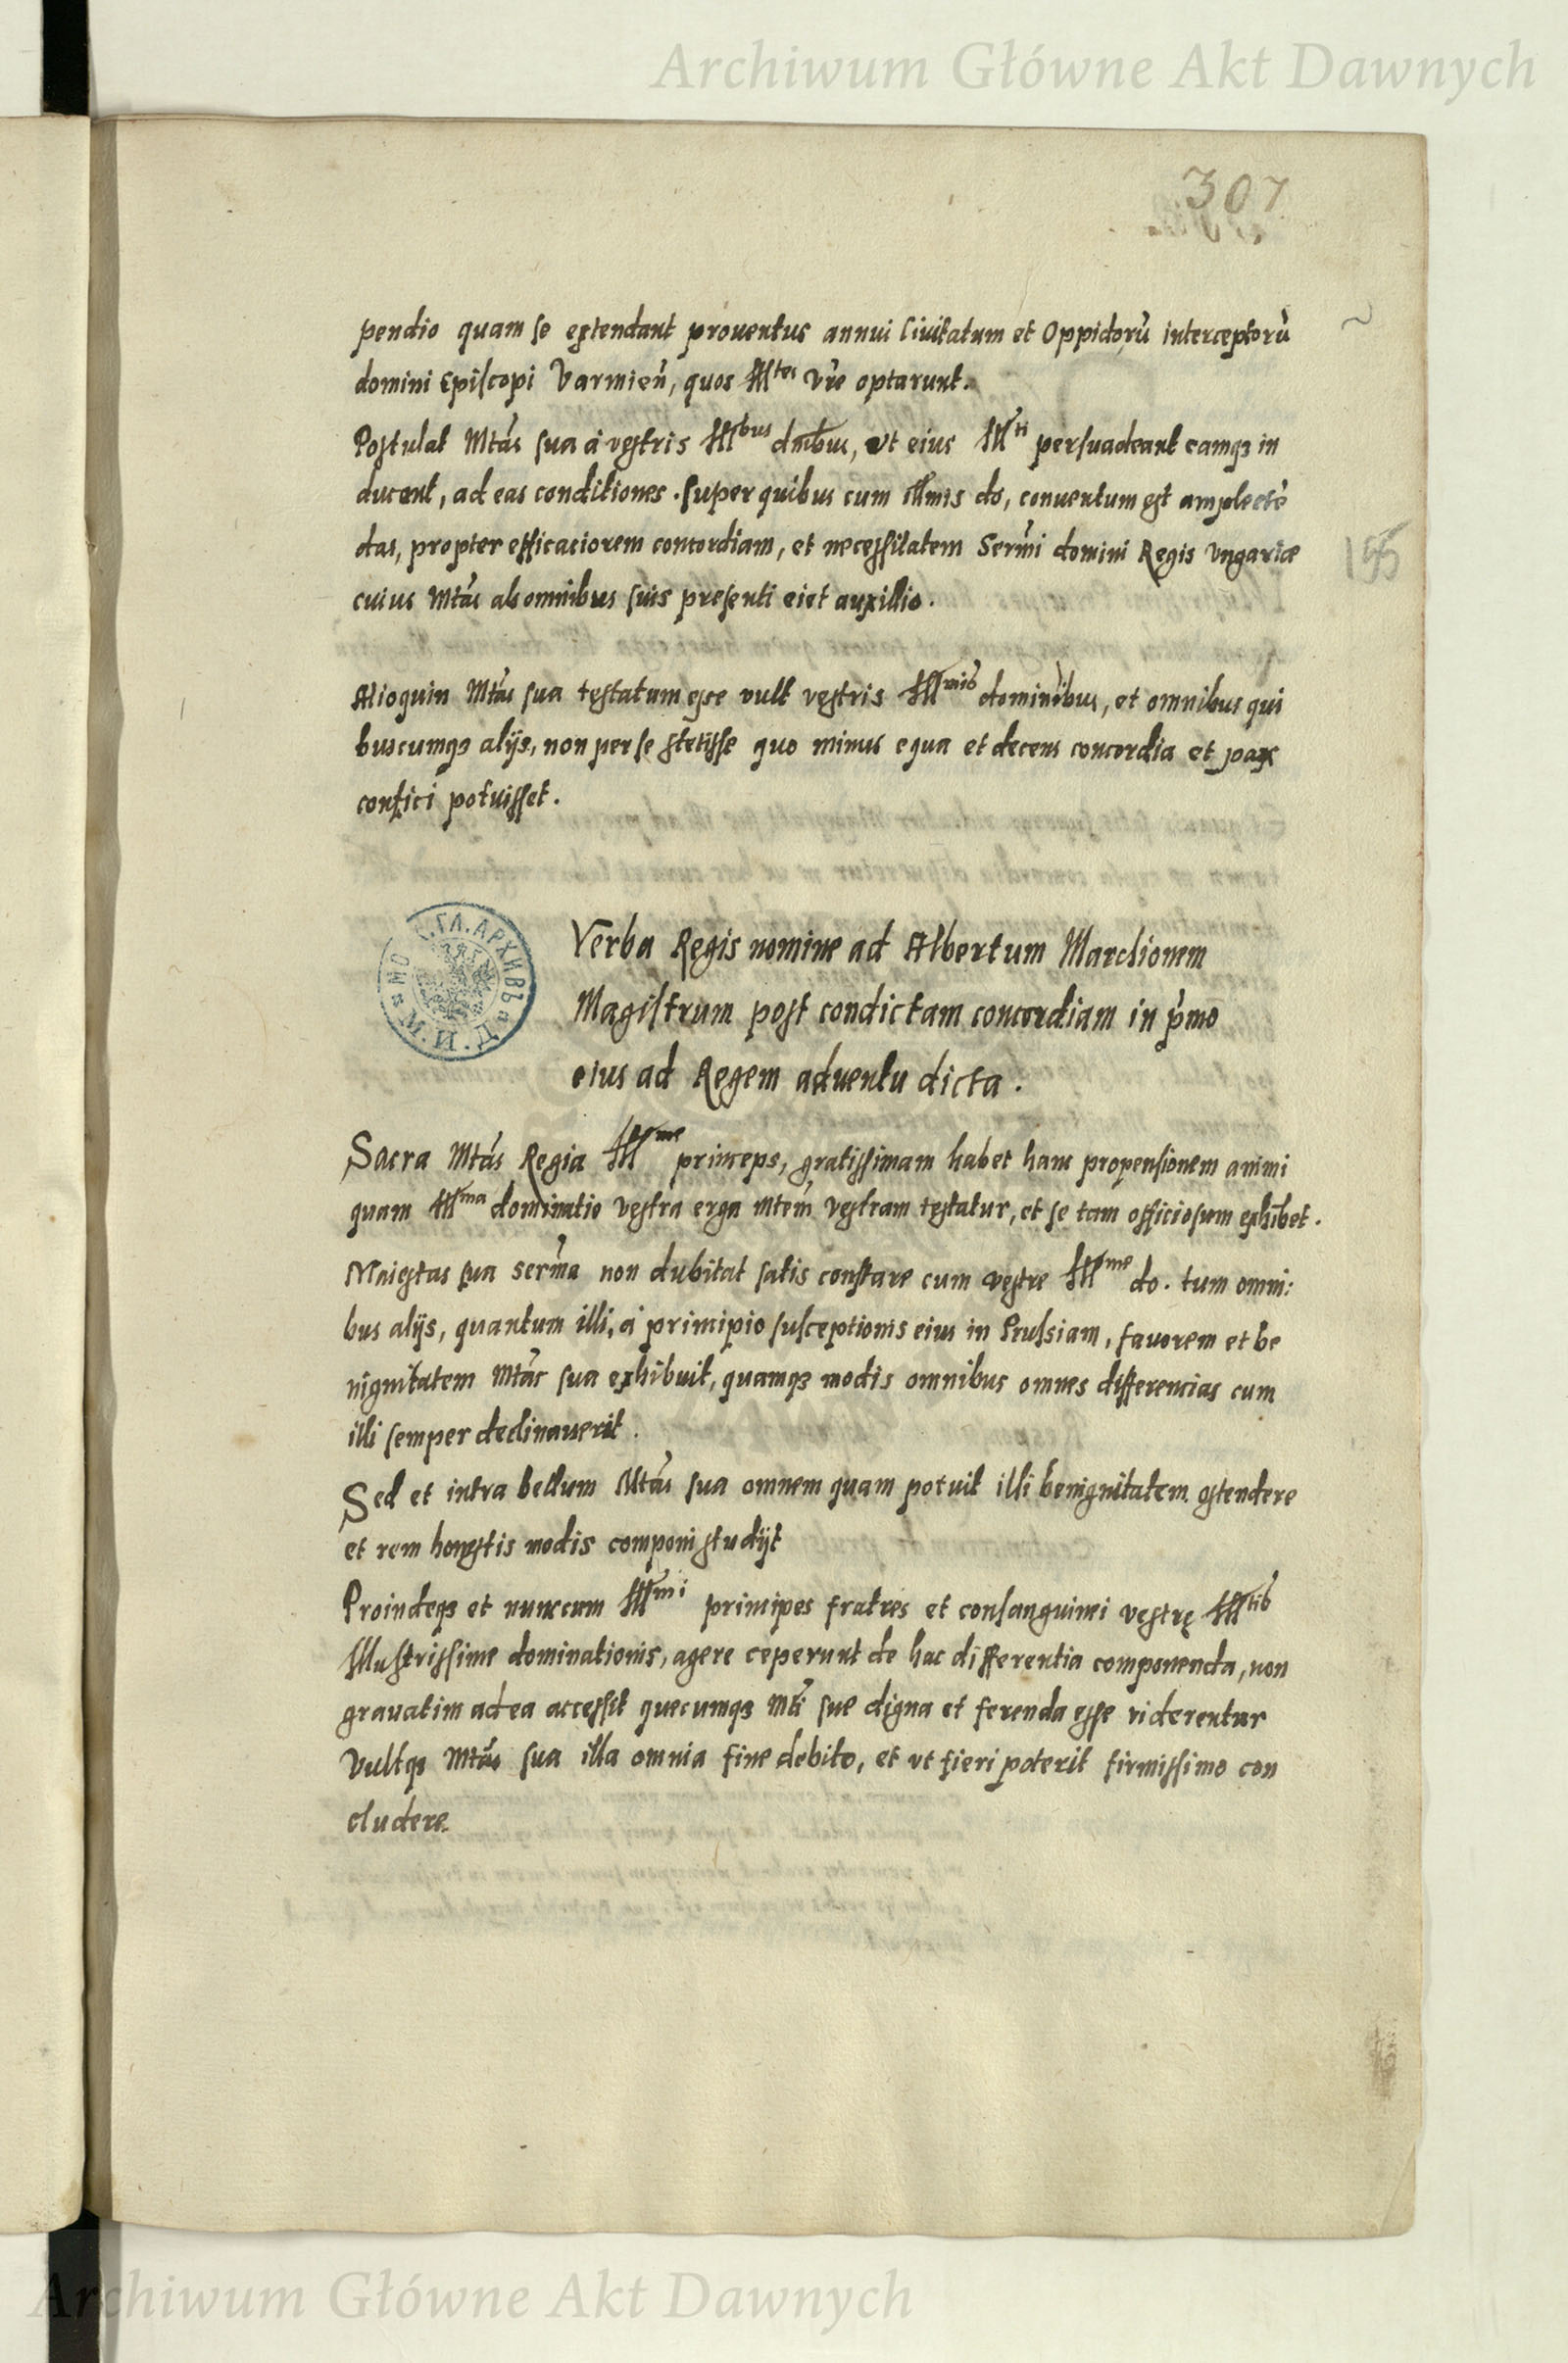 Archiwum Główne Akt Dawnych
307
pendio quam se extendant prouentus annui Ciuitatum et Oppidorũ interceptorũ
domini Episcopi Varmieñ, quos Ill^tes Vr̃e optarunt.
Postulat Mtãs sua á vestris Ill^bus dnĩbus, vt eius Ill^ti persuadeant eamqȝ in
ducant, ad eas conditiones. super quibus cum Illmis do, conuentum est amplectẽ
das, propter efficaciorem concordiam, et necessitatem Serm̃i domini Regis Vngariæ
cuius Mtãs ab omnibus suis presenti eiet auxillio.
155
Alioquin Mtãs sua testatum esse vult vestris Ill^mis dominibus, et omnibus qui
buscumqȝ alijs, non per se stetisse quo minus equa et decens concordia et pax
confici potuisset.
Verba Regis nomine ad Albertum Marchionem
Magistrum post condictam concordiam in p̃mo
eius ad Regem aduentu dicta.
Sacra Mtãs Regia Ill^me princeps, gratissimam habet hanc propensionem animi
quam Ill^ma dominatio vestra erga Mtem̃ vestram testatur, et se tam officiosum exhibet.
Maiestas sua serm̃a non dubitat satis constare cum vestre Ill^me do. tum omni:
bus alijs, quantum illi, á principio susceptionis eius in Prussiam, fauorem et be
nignitatem Mtãs sua exhibuit, quamqȝ modis omnibus omnes differencias cum
illi semper declinauerit.
Sed et intra bellum Mtãs sua omnem quam potuit illi benignitatem ostendere
et rem honestis modis componi studijt
Proindeqȝ et nunc cum Ill^mi principes fratres et consanguinei vestrę Ill^tis
Illustrissime dominationis, agere ceperunt de hac differentia componenda, non
grauatim ad ea accessit quecumqȝ Mtĩ sue digna et ferenda esse viderentur
Vultqȝ Mtãs sua illa omnia fine debito, et vt fieri poterit firmissimo con
cludere.
Archiwum Główne Akt Dawnych